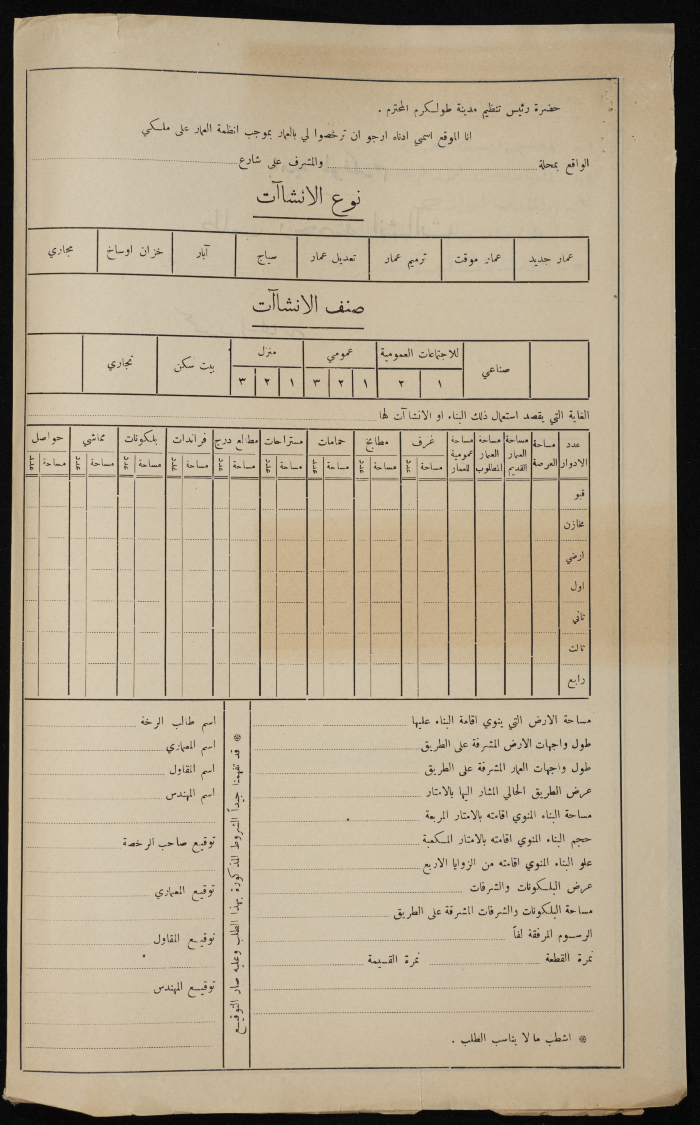 حضرة رئيس تنظيم مدينة طولكرم المحترم .
انا الموقع اسمي ادناه ارجو ان ترخصوا لي بالعمار بموجب انظمة العمار على ملكي
الواقع بمحلة والمشرف على شارع
نوع الانشاآت
عمار جديد عمار موقت ترميم عمار تعديل عمار سياج آبار خزان اوساخ مجاري
صنف الانشاآت
صناعي للاجتماعات العمومية عمومي منزل بيت سكن تجاري
١ ٢ ١ ٢ ٣ ١ ٢ ٣
الغاية التي يقصد استعمال ذلك البناء او الانشاآت لها
عدد الادوار مساحة العرصة مساحة العمار القديم مساحة العمار المطلوب مساحة عمومية للعمار غرف مطابخ حمامات مستراحات مطالع درج فراندات بلكونات مماشي حواصل
مساحة عدد مساحة عدد مساحة عدد مساحة عدد مساحة عدد مساحة عدد مساحة عدد مساحة عدد مساحة عدد
قبو
مخازن
ارضي
اول
ثاني
ثالث
رابع
مساحة الارض التي ينوي اقامة البناء عليها
طول واجهات الارض المشرفة على الطريق
طول واجهات العمار المشرفة على الطريق
عرض الطريق الحالي المشار اليها بالامتار
مساحة البناء المنوي اقامته بالامتار المربعة
حجم البناء المنوي اقامته بالامتار المكعبة
علو البناء المنوي اقامته من الزوايا الاربع
عرض البلكونات والشرفات
مساحة البلكونات والشرفات المشرفة على الطريق
الرسوم المرفقة لفاً
نمرة القطعة نمرة القسيمة
⊛ اشطب ما لا يناسب الطلب .
⊛ قد تفهمنا جيداً الشروط المذكورة بهذا الطلب وعليه صار التوقيع
اسم طالب الرخة
اسم المعماري
اسم المقاول
اسم المهندس
توقيع صاحب الرخصة
توقيع المعماري
توقيع المقاول
توقيع المهندس